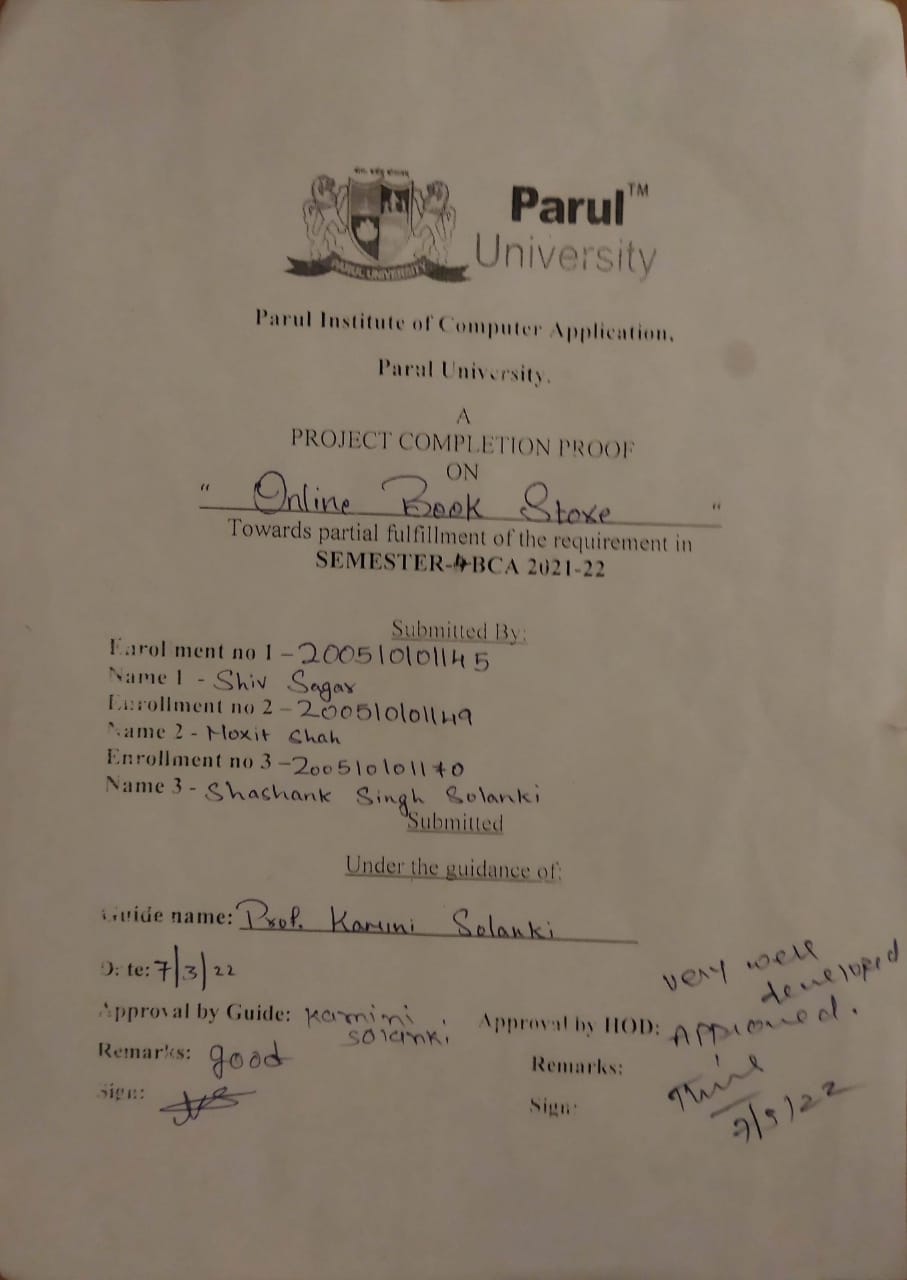 Parul™
University
PARUL UNIVERSITY
Parul Institute of Computer Application,
Parul University.
A
PROJECT COMPLETION PROOF
ON
" Online Book Store "
Towards partial fulfillment of the requirement in
SEMESTER-4 BCA 2021-22
Submitted By:
Enrollment no 1 - 200510101145
Name 1 - Shiv Sagar
Enrollment no 2 - 200510101149
Name 2 - Moxit Shah
Enrollment no 3 - 200510101170
Name 3 - Shashank Singh Solanki
Submitted
Under the guidance of:
Guide name: Prof. Kamini Solanki
Date: 7/3/22
very well
developed
Approval by Guide: Kamini Solanki
Approval by HOD: Approved.
Remarks: good
Remarks:
Sign:
Sign: